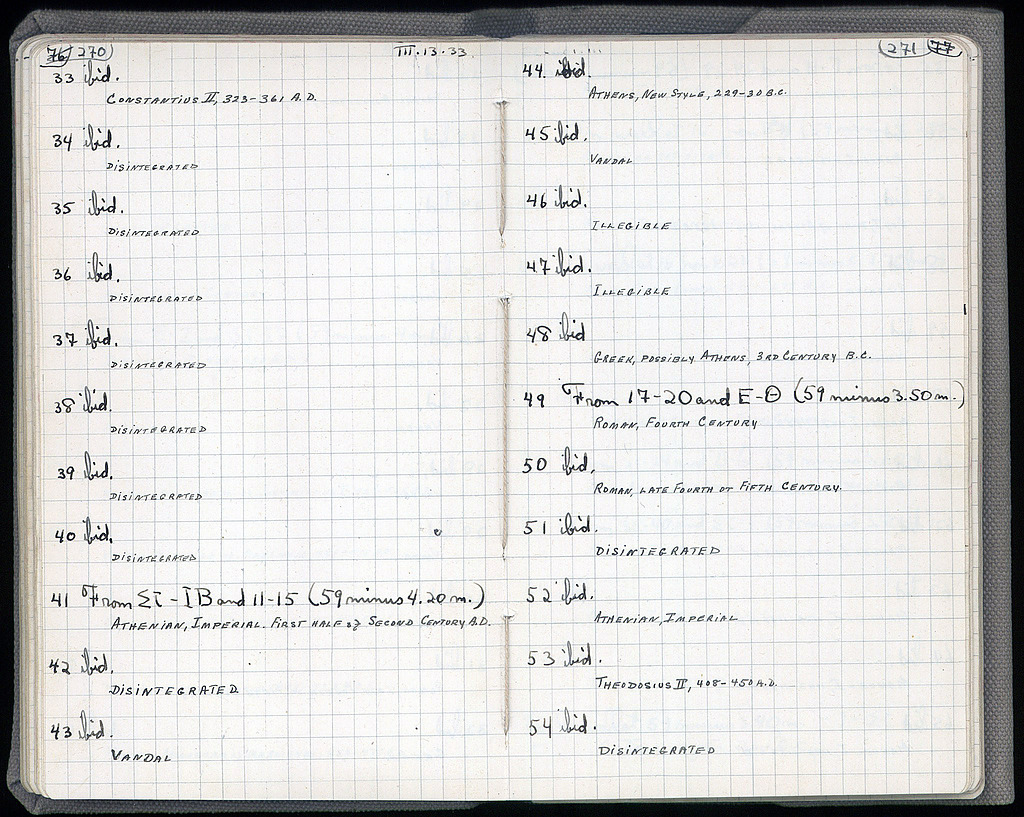 76 270
III·13·33
33 ibid.
CONSTANTIUS II, 323-361 A.D.
34 ibid.
DISINTEGRATED
35 ibid.
DISINTEGRATED
36 ibid.
DISINTEGRATED
37 ibid.
DISINTEGRATED
38 ibid.
DISINTEGRATED
39 ibid.
DISINTEGRATED
40 ibid.
DISINTEGRATED
41 From ΣΤ-ΙΒ and 11-15 (59 minus 4.20 m.)
ATHENIAN, IMPERIAL. FIRST HALF of SECOND CENTURY A.D.
42 ibid.
DISINTEGRATED.
43 ibid.
VANDAL
271 77
44 ibid.
ATHENS, NEW STYLE, 229-30 B.C.
45 ibid.
VANDAL
46 ibid.
ILLEGIBLE
47 ibid.
ILLEGIBLE
48 ibid
GREEK, POSSIBLY ATHENS, 3RD CENTURY B.C.
49 From 17-20 and E-Θ (59 minus 3.50 m.)
ROMAN, FOURTH CENTURY
50 ibid.
ROMAN, LATE FOURTH OT FIFTH CENTURY.
51 ibid.
DISINTEGRATED
52 ibid.
ATHENIAN, IMPERIAL
53 ibid.
THEODOSIUS II, 408-450 A.D.
54 ibid.
DISINTEGRATED